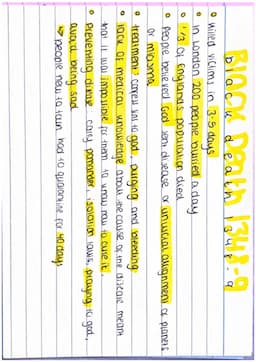 Black Death 1348-9
• killed victims in 3-5 days
• in London 200 people burried a day
• 1/3 of England's population died
• People believed God sent disease or unusual alignment of planets
or miasma
• Treatment: prayed to god, purging and bleeding
• lack of medical knowledge about the cause of the disease meant
that it was impossible for them to know how to cure it.
• Preventing disease: carry pomander, isolation laws, praying to god,
avoid being sad
↳ people new to town had to quarantine for 40 days